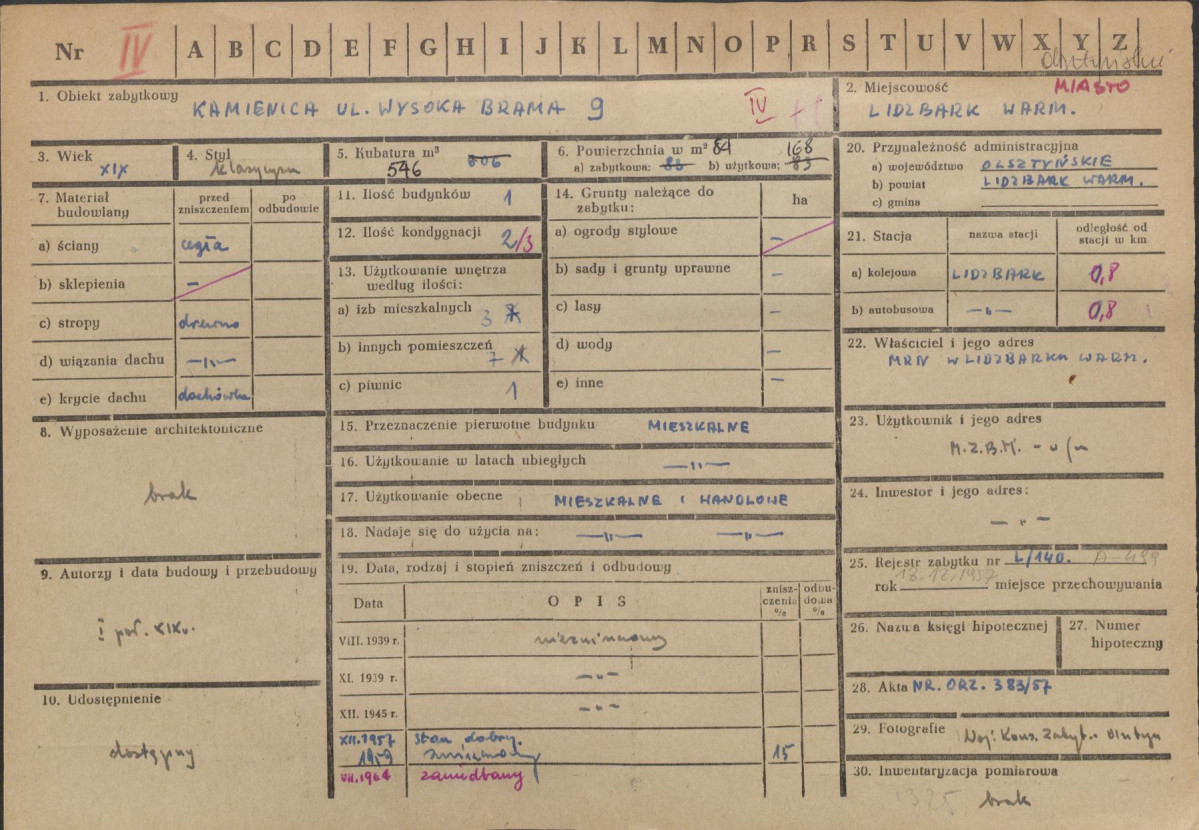 Nr IV A B C D E F G H I J K L M N O P R S T U V W X Y Z
olsztyńskie
1. Obiekt zabytkowy
KAMIENICA UL. WYSOKA BRAMA 9 IV
2. Miejscowość MIASTO
LIDZBARK WARM.
3. Wiek
XIX
4. Styl
klasycyzm
5. Kubatura m³
546 606
6. Powierzchnia w m² 84 168
a) zabytkowa: 83 b) użytkowa: 83
20. Przynależność administracyjna
a) województwo OLSZTYŃSKIE
b) powiat LIDZBARK WARM.
c) gmina
7. Materiał budowlany
przed zniszczeniem
po odbudowie
a) ściany cegła
b) sklepienia –
c) stropy drewno
d) wiązania dachu –"–
e) krycie dachu dachówka
11. Ilość budynków 1
12. Ilość kondygnacji 2/3
13. Użytkowanie wnętrza
według ilości:
a) izb mieszkalnych 3
b) innych pomieszczeń 7
c) piwnic 1
14. Grunty należące do
zabytku:
ha
a) ogrody stylowe –
b) sady i grunty uprawne –
c) lasy –
d) wody –
e) inne –
21. Stacja
nazwa stacji
odległość od
stacji w km
a) kolejowa LIDZBARK 0,8
b) autobusowa –"– 0,8
22. Właściciel i jego adres
MRN W LIDZBARKU WARM.
8. Wyposażenie architektoniczne
brak
15. Przeznaczenie pierwotne budynku MIESZKALNE
16. Użytkowanie w latach ubiegłych –"–
17. Użytkowanie obecne MIESZKALNE I HANDLOWE
18. Nadaje się do użycia na: –"– –"–
23. Użytkownik i jego adres
M.Z.B.M. – w/m
24. Inwestor i jego adres:
– " –
9. Autorzy i data budowy i przebudowy
I poł. XIX w.
19. Data, rodzaj i stopień zniszczeń i odbudowy
Data
OPIS
znisz-
czenia
%
odbu-
dowa
%
VIII. 1939 r. niezniszczony
XI. 1939 r. –"–
XII. 1945 r. –"–
XII.1957 stan dobry.
1959 15
VII.1964 zaniedbany
25. Rejestr zabytku nr L/140. A-499
rok 18.12.1957 miejsce przechowywania
26. Nazwa księgi hipotecznej
27. Numer
hipoteczny
10. Udostępnienie
dostępny
28. Akta NR. ORZ. 383/57
29. Fotografie Woj. Kons. Zabyt. Olsztyn
30. Inwentaryzacja pomiarowa
1325 brak